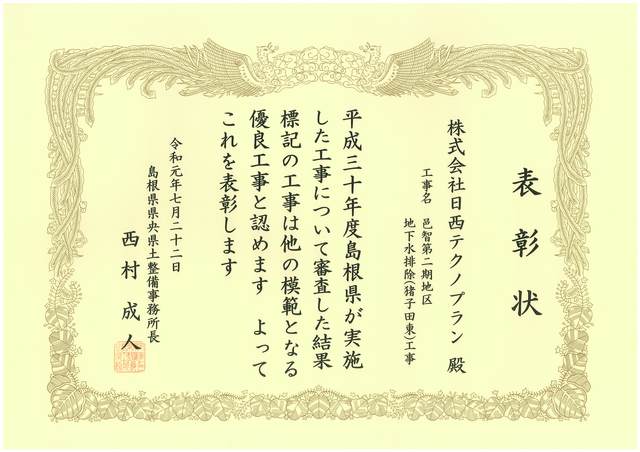 表彰状
株式会社日西テクノプラン 殿
工事名 邑智第二期地区
地下水排除(猪子田東)工事
平成三十年度島根県が実施
した工事について審査した結果
標記の工事は他の模範となる
優良工事と認めます よって
これを表彰します
令和元年七月二十二日
島根県県央県土整備事務所長
西村成人